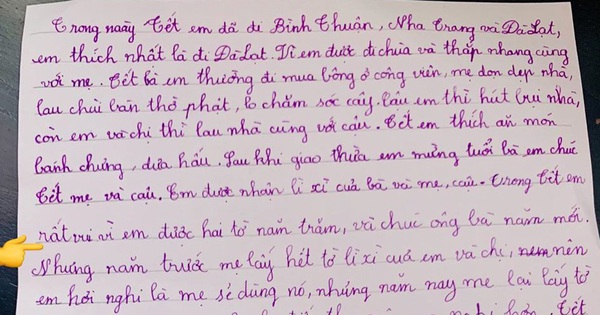 Trong ngày Tết em đã đi Bình Thuận, Nha Trang và Đà Lạt,
em thích nhất là đi Đà Lạt. Vì em được đi chùa và thắp nhang cùng
với mẹ. Tết bà em thường đi mua bông ở công viên, mẹ dọn dẹp nhà,
lau chùi bàn thờ phật, lo chăm sóc cây. Cậu em thì hút bụi nhà,
còn em và chị thì lau nhà cùng với cậu. Tết em thích ăn món
bánh chưng, dưa hấu. Sau khi giao thừa em mừng tuổi bà em chúc
Tết mẹ và cậu. Em được nhận lì xì của bà và mẹ, cậu. Trong Tết em
rất vui vì em được hai tờ năm trăm, và chúc ông bà năm mới.
Nhưng năm trước mẹ lấy hết tờ lì xì cuả em và chị, nên
em hơi nghi là mẹ sẽ dùng nó, nhưng năm nay mẹ lại lấy tờ
Tết